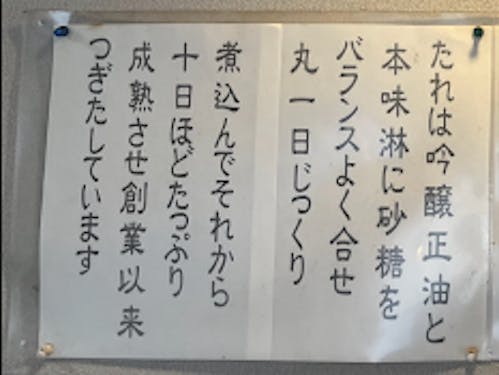 たれは吟醸正油と
本味淋に砂糖を
バランスよく合せ
丸一日じっくり
煮込んでそれから
十日ほどたっぷり
成熟させ創業以来
つぎたしています